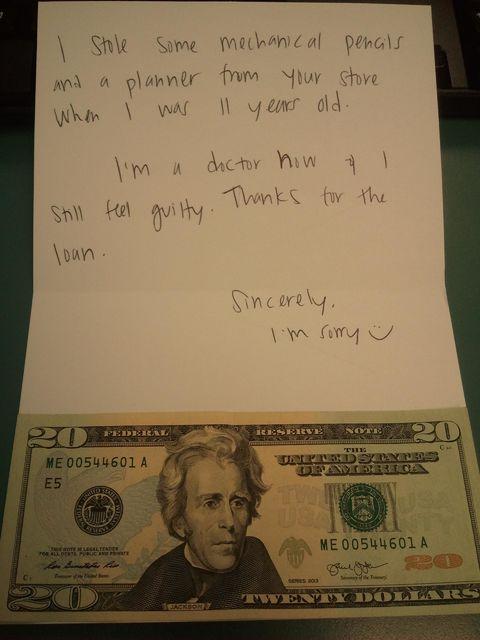 I stole some mechanical pencils
and a planner from your store
when I was 11 years old.
I'm a doctor now & I
still feel guilty. Thanks for the
loan.
Sincerely,
I'm sorry :)
20 FEDERAL RESERVE NOTE 20
THE
UNITED STATES
OF AMERICA
ME 00544601 A
E5
THIS NOTE IS LEGAL TENDER
FOR ALL DEBTS, PUBLIC AND PRIVATE
ME 00544601 A
20
Treasurer of the United States
SERIES 2013
Secretary of the Treasury
JACKSON
20 TWENTY DOLLARS